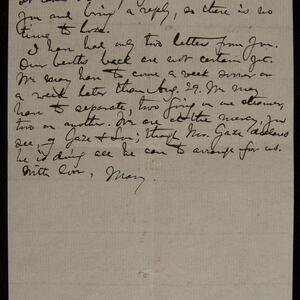 you and bring a reply, so there is no
time to lose.
I have had only two letters from you.
Our berths back are not certain yet.
We may have to come a week sooner or
a week later than Aug. 29. We may
have to separate, two going on one steamer,
two on another. We are at the mercy, you
see, of Gaze & Son; though Mr. Gaze declares
he is doing all he can to arrange for us.
With love, Mary